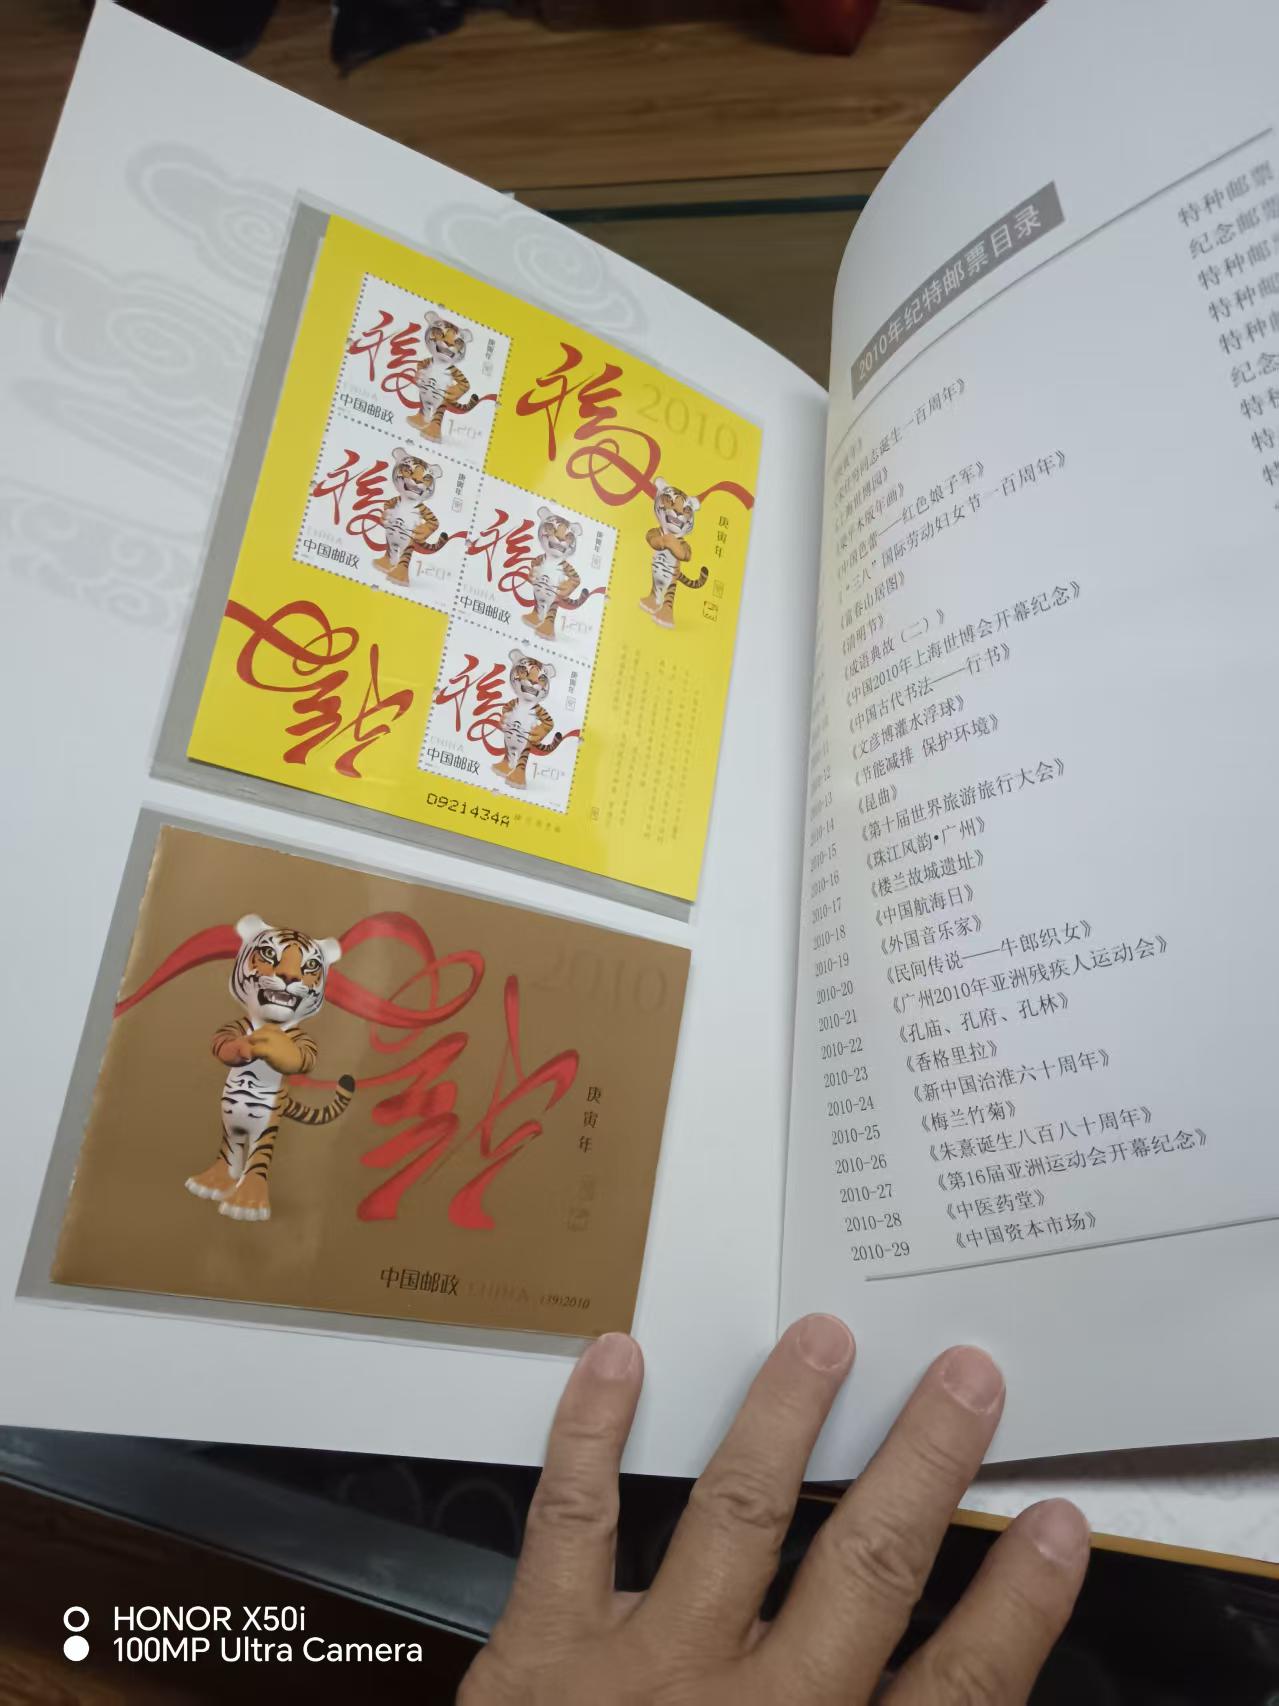 福
2010
庚寅年
福
庚寅年
CHINA
中国邮政
1.20元
福
庚寅年
CHINA
中国邮政
1.20元
福
庚寅年
CHINA
中国邮政
1.20元
福
庚寅年
CHINA
中国邮政
1.20元
福
0921434A
2010
福
庚寅年
中国邮政 CHINA (39)2010
2010年纪特邮票目录
同志诞生一百周年》
《中国芭蕾——红色娘子军》
《“三八”国际劳动妇女节一百周年》
《富春山居图》
《清明节》
《成语典故（二）》
《中国2010年上海世博会开幕纪念》
《中国古代书法——行书》
《文彦博灌水浮球》
2010-12 《节能减排 保护环境》
2010-13
2010-14 《昆曲》
2010-15 《第十届世界旅游旅行大会》
2010-16 《珠江风韵·广州》
2010-17 《楼兰故城遗址》
2010-18 《中国航海日》
2010-19 《外国音乐家》
2010-20 《民间传说——牛郎织女》
2010-21 《广州2010年亚洲残疾人运动会》
2010-22 《孔庙、孔府、孔林》
2010-23 《香格里拉》
2010-24 《新中国治淮六十周年》
2010-25 《梅兰竹菊》
2010-26 《朱熹诞生八百八十周年》
2010-27 《第16届亚洲运动会开幕纪念》
2010-28 《中医药堂》
2010-29 《中国资本市场》
特种邮票
纪念邮票
特种邮票
特种邮
特种
纪念
特种
特
HONOR X50i
100MP Ultra Camera